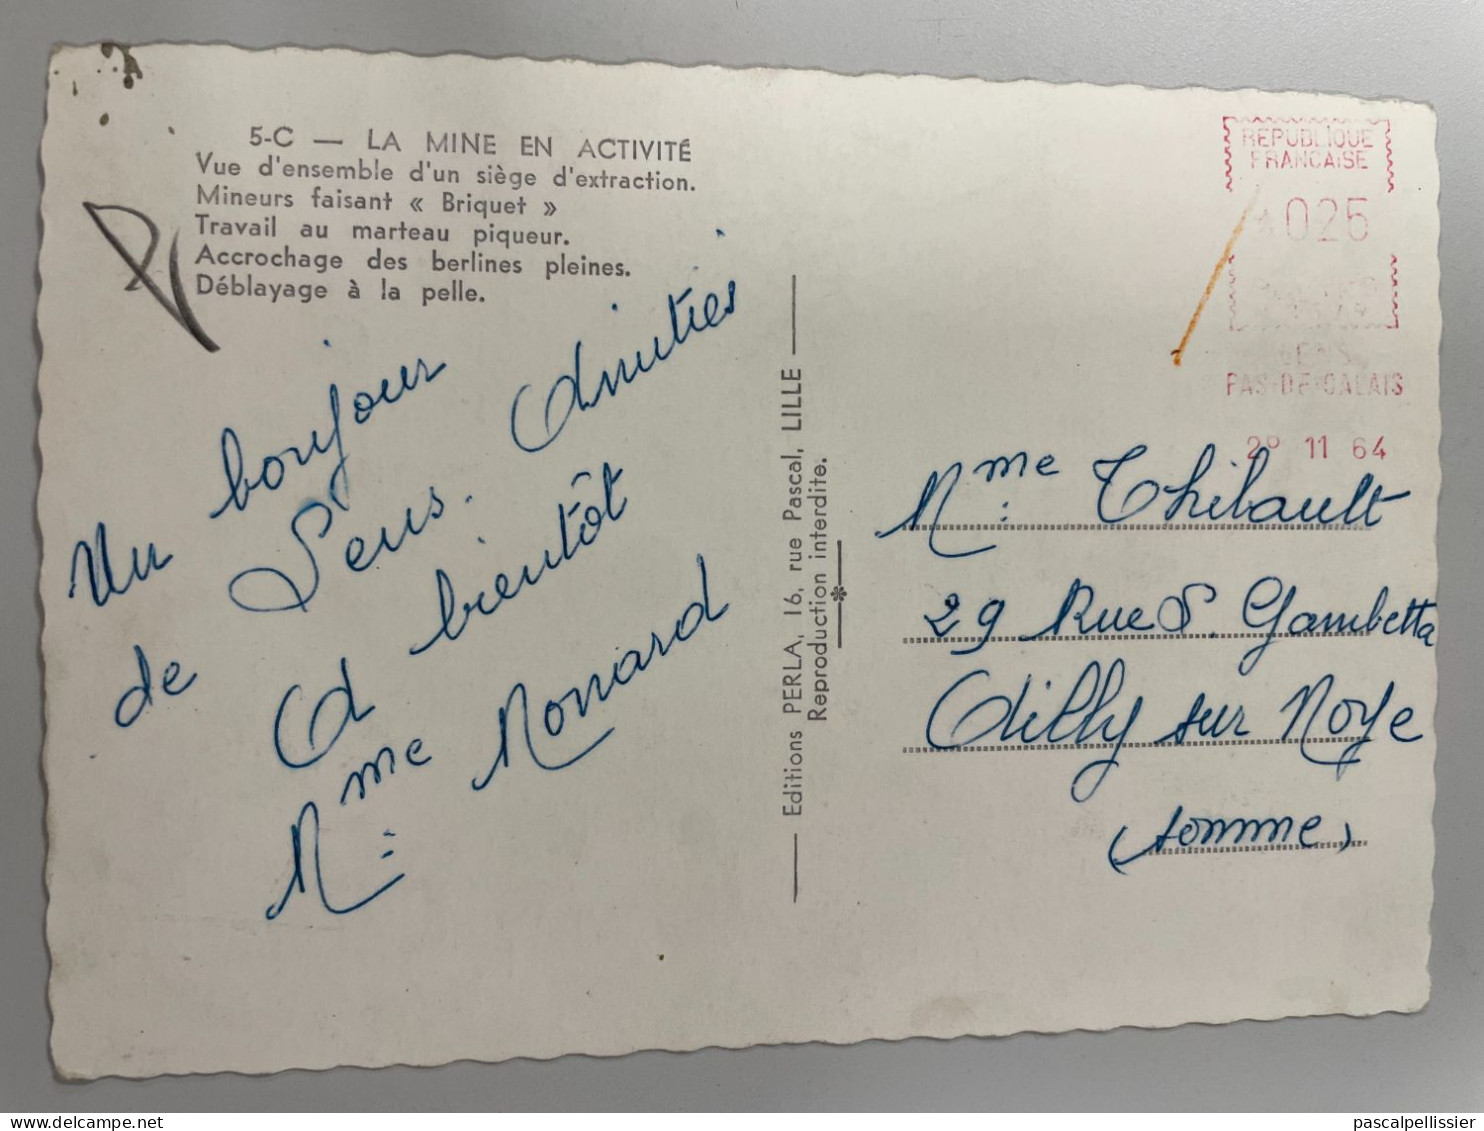 5-C — LA MINE EN ACTIVITÉ
Vue d'ensemble d'un siège d'extraction.
Mineurs faisant « Briquet »
Travail au marteau piqueur.
Accrochage des berlines pleines.
Déblayage à la pelle.
Un bonjour
de Lens. Amitiés
A bientôt
Mme Monard
Editions PERLA, 16, rue Pascal, LILLE
Reproduction interdite.
REPUBLIQUE
FRANCAISE
025
LENS
PAS-DE-CALAIS
11 64
Mme Thibault
29 Rue Gambetta
Ailly sur Noye
(Somme)
delcampe.net
pascalpellissier